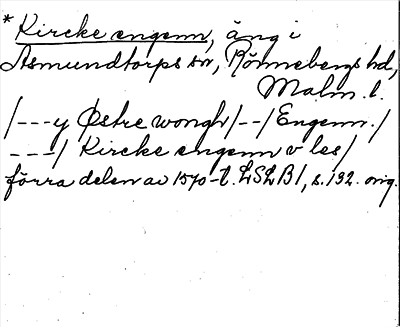 * Kircke engenn, äng i
Asmundtorps sn, Rönnebergs hd,
Malm. l.
/---y Østre wongh/--/Engenn./
---/ Kircke engenn v les/
förra delen av 1570-t. LSLB1, s. 132. orig.